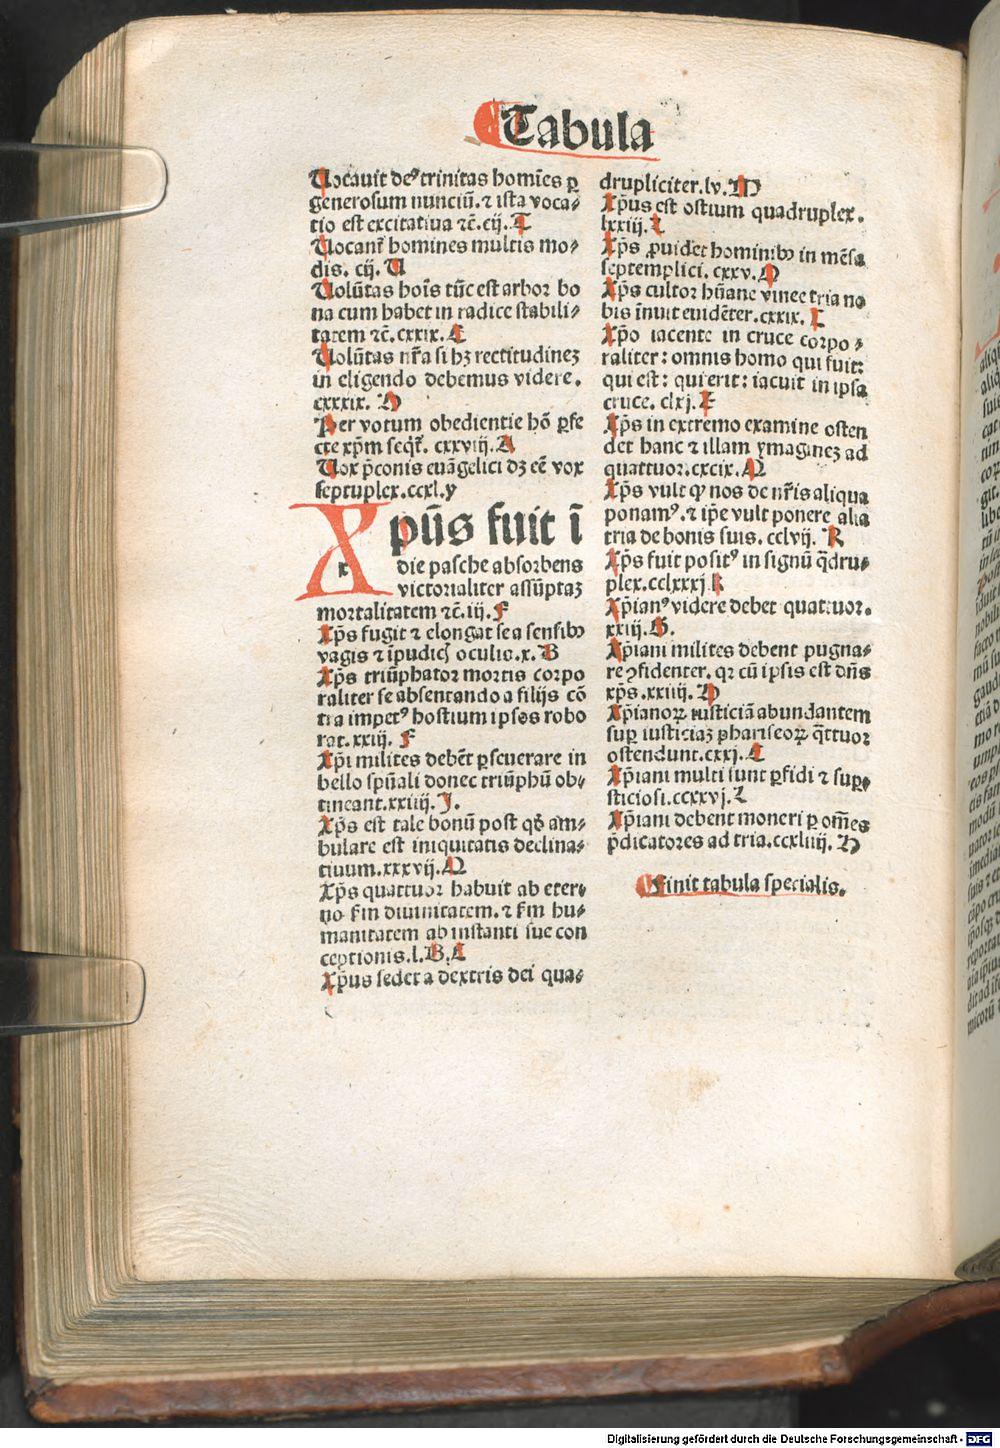 Tabula
Uocauit deꝰ trinitas homīes ꝑ
generosum nunciū. ⁊ ista voca⸗
tio est excitatiua ⁊c̄. cij. T
Uocant̄ homines multis mo⸗
dis. cij. U
Uolūtas hoīs tūc est arbor bo
na cum habet in radice stabili⸗
tatem ⁊c̄. cxxix. E
Uolūtas nr̄a si hꝫ rectitudineꝫ
in eligendo debemus videre.
cxxxix. D
Per votum obedientie hō ꝑfe
cte xp̄m seqt̄. cxxviij. A
Uox p̄conis euāgelici dꝫ eē vox
septuplex. ccxl. y
Xpūs fuit ī
die pasche absorbens
victorialiter assūptaꝫ
mortalitatem ⁊c̄. iij. F
Xp̄s fugit ⁊ elongat se a sensibꝰ
vagis ⁊ īpudicꝭ oculis. x. B
Xp̄s triūphator mortis corpo
raliter se absentando a filijs cō
tra impetꝰ hostium ipsos robo
rat. xxiij. F
Xp̄i milites debēt ꝑseuerare in
bello spūali donec triūphū ob⸗
tineant. xxiiij. J.
Xp̄s est tale bonū post qd̄ am⸗
bulare est iniquitatis declina⸗
tiuum. xxxvij. M
Xp̄s quattuor habuit ab eter⸗
no s̄m diuinitatem. ⁊ s̄m hu⸗
manitatem ab instanti sue con
ceptionis. l. B. A
Xp̄us sedet a dextris dei qua⸗
drupliciter. lv. M
Xp̄us est ostium quadruplex.
lxxiij.
Xp̄s ꝓuidet hominibꝰ in mēsa
septemplici. cxxv.
Xp̄s cultor hūane vinee tria no
bis īnuit euidēter. cxxix.
Xp̄o iacente in cruce corpo⸗
raliter: omnis homo qui fuit:
qui est: qui erit: iacuit in ipsa
cruce. clxj. F
Xp̄s in extremo examine osten
det hanc ⁊ illam ymagineꝫ ad
quattuor. cxcix. M
Xp̄s vult ꝙ nos de nr̄is aliqua
ponamꝰ. ⁊ ip̄e vult ponere alia
tria de bonis suis. cclvij. R
Xp̄s fuit positꝰ in signū q̄dru⸗
plex. cclxxxj. R
Xp̄ianꝰ videre debet quattuor.
xxiij. G.
Xp̄iani milites debent pugna⸗
re ꝯfidenter. qꝛ cū ipsis est dn̄s
xp̄s. xxiiij. D
Xp̄ianoꝝ iusticiā abundantem
suꝑ iusticiaꝫ phariseoꝝ q̄ttuor
ostendunt. cxxj. A
Xp̄iani multi sunt ꝑfidi ⁊ suꝑ⸗
sticiosi. ccxxvj. L
Xp̄iani debent moneri ꝑ om̄es
p̄dicatores ad tria. ccxliiij. D
Finit tabula specialis.
Digitalisierung gefördert durch die Deutsche Forschungsgemeinschaft - DFG